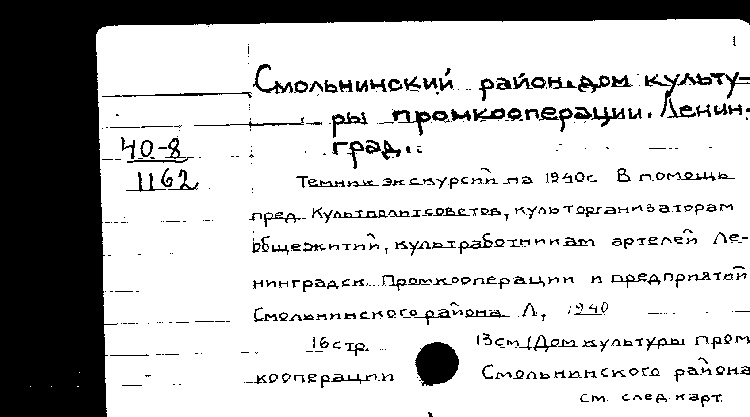 Смольнинский район.дом культу-
ры промкооперации. Ленин-
град.
40-8
1162
Темник экскурсий на 1940г В помощь
пред. Культполитсоветов, культорганизаторам
общежитий, культработникам артелей Ле-
нинградск. Промкооперации и предприятий
Смольнинского района Л, 1940
16 стр. 13см (Дом культуры пром
кооперации Смольнинского района
см. след. карт.